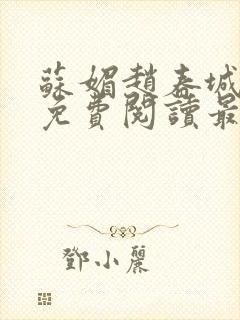 蘇媚趙泰城
免費閱讀最
鄧小麗